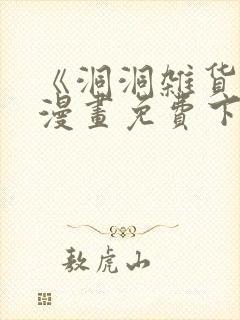 《洞洞杂货
漫畫免費下
敖虎山